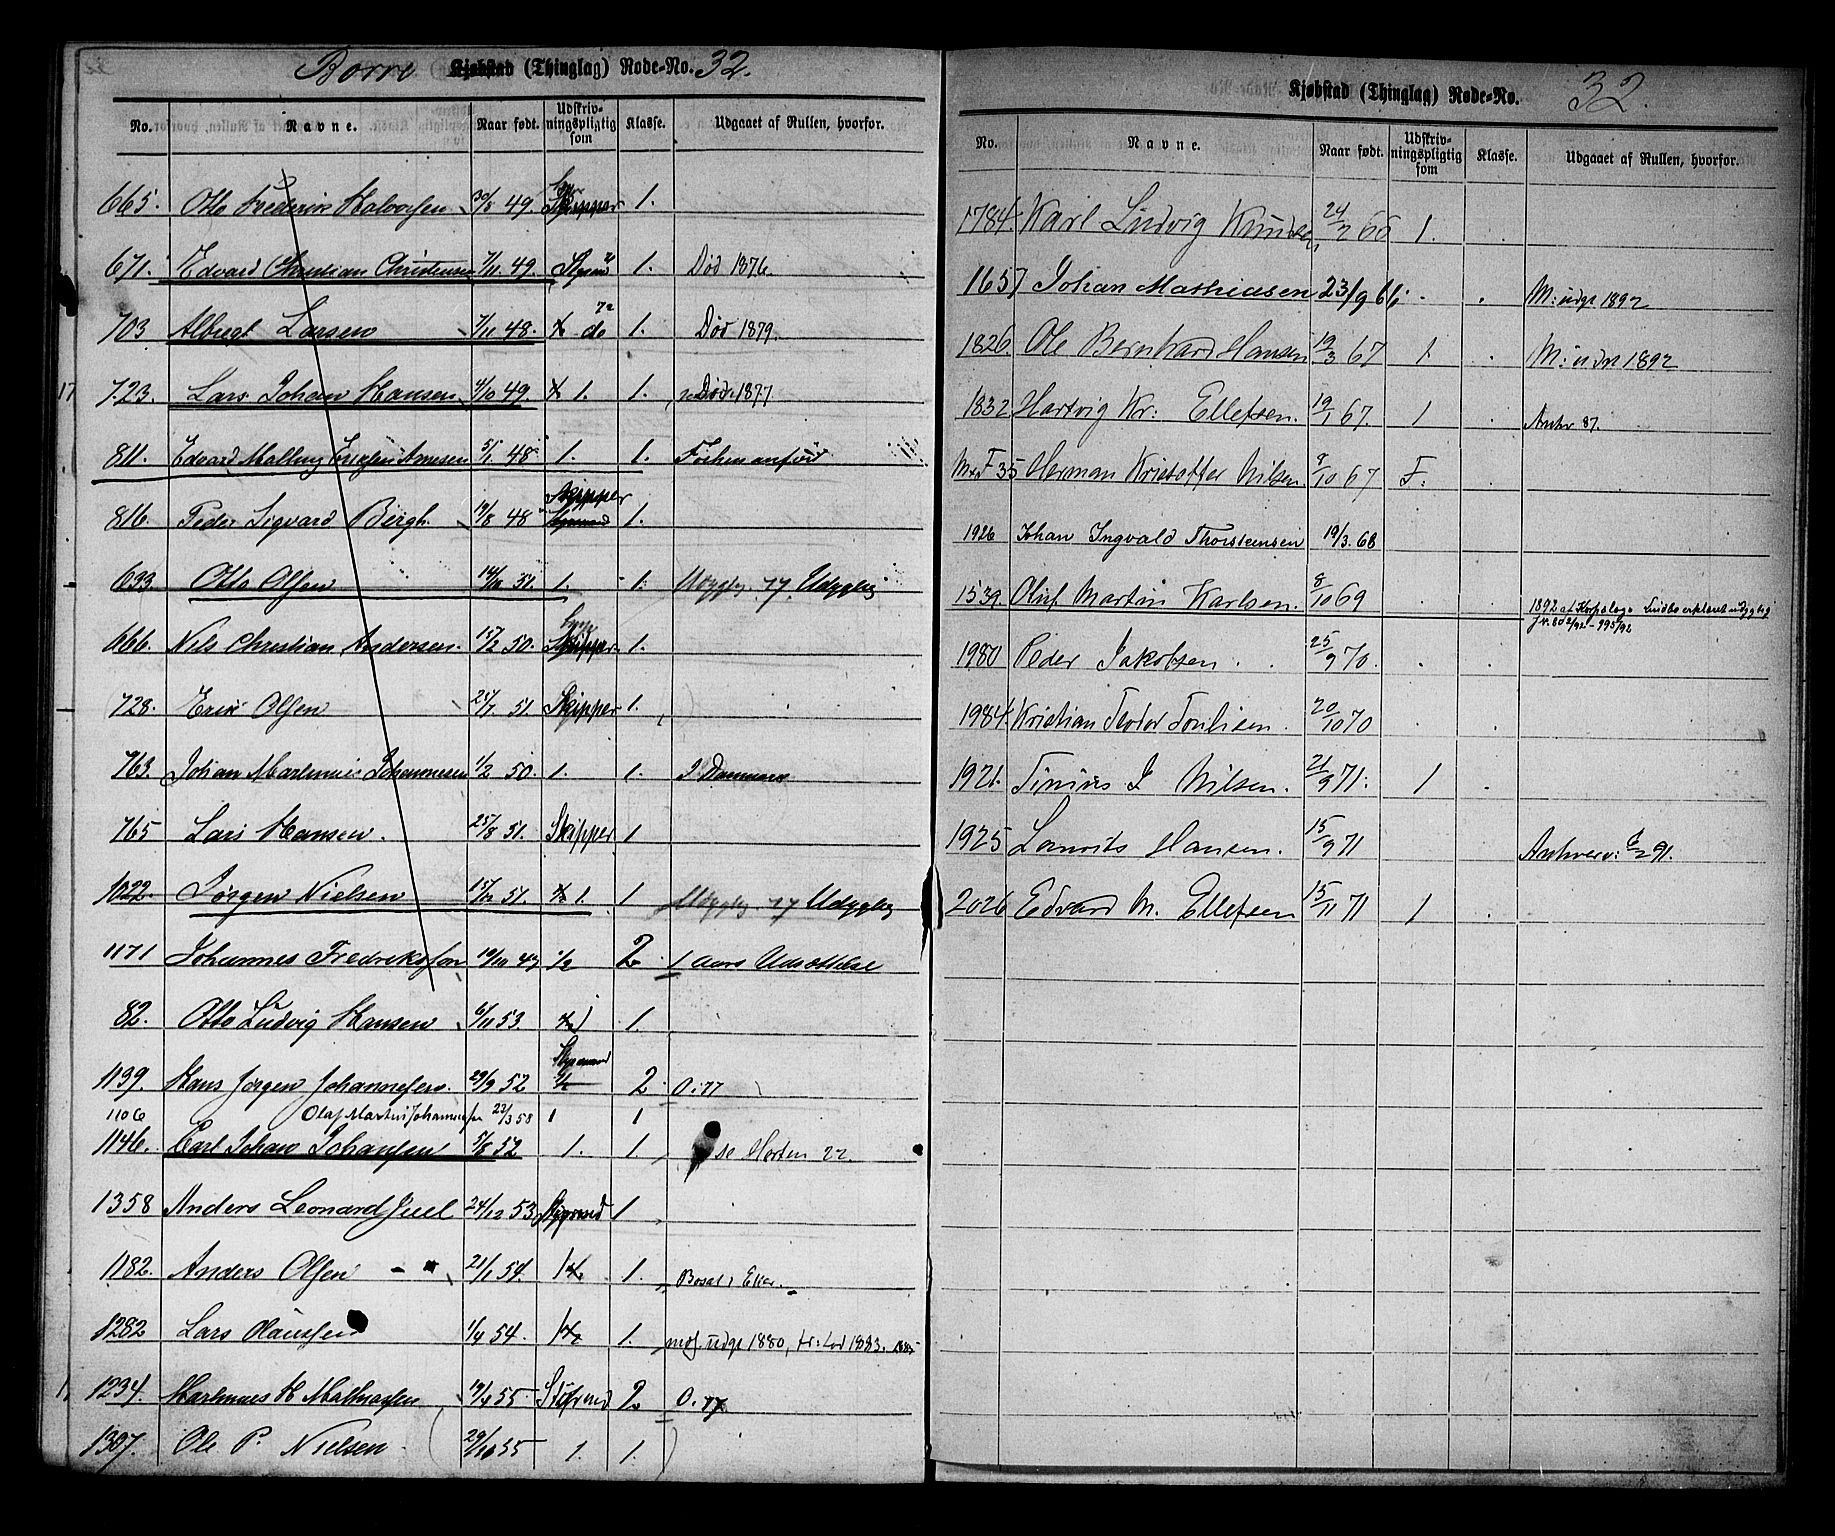 Borre Kjøbstad (Thinglag) Rode-No. 32.
No. Navne. Naar født. Udskrivningspligtig som Klasse. Udgaaet af Rullen, hvorfor.
665. Otto Frederik Halvorsen 30/8 49. Skipper 1.
671. Edvard Christian Christensen 7/11 49. 1. Død 1876.
703 Albregt Larsen 7/11 48. do 1. Død 1879.
723. Lars Johan Hansen 4/10 49. 1. 1. Død 1877
811. Edvard Arnesen 5/1 48 1. 1.
816. Peder Sigvard Bergh. 19/8 48 Skipper 1.
633. Otto Olsen 51. 1. 1. Udygtig 77 Udygtig
666. Nils Christian Andersen. 15/2 50. Skipper 1.
728. Erik Olsen 51. Skipper 1.
763. Johan Martinius Johannesen 1/2 50. 1. 1.
765 Lars Hansen. 25/8 51. Skipper 1
1022. Jørgen Nielsen 51. 1. 1 Udygtig 77 Udygtig
1171 Johannes Fredriksson 19/10 47 1/2 2. 1 Aars Udsættelse
82. Otto Ludvig Hansen 6/11 53 1.
1139. Hans Jørgen Johannesen. 29/9 52 2 O. 77
1106 Olaf Martin Johannesen 22/3 58 1 1
1146. Carl Johan Johansen 5/8 52 1. 1. se Horten 22.
1358 Anders Leonard Juel 24/12 53 1
1182. Anders Olsen 21/1 54. 1 1.
1282 Lars Olaussen 1/4 54. 1 1. udgt 1880,
1234. Martinues H. Mathiassen 19/4 55 2. O. 77
1307. Ole P. Nielsen 29/10 55 1. 1.
Kjøbstad (Thinglag) Rode-No. 32.
No. Navne. Naar født. Udskrivningspligtig som Klasse. Udgaaet af Rullen, hvorfor.
1784. Karl Ludvig Knudsen 24/2 66 1.
1657 Johan Mathiasen 23/9 66. M: udgt 1892
1826. Ole Bernhard Hansen 19/3 67 1. M: udgt 1892
1832 Hartvig Kr: Ellefsen. 19/1 67. 1
F 35 Herman Kristoffer Nilsen 8/10 67 F.
1926 Johan Ingvald Thorstensen 19/3. 68
1539. Oluf Martin Karlsen. 8/10 69 1892 af Korpslæge Lindboe erklæret udygtig
1980 Peder Jakobsen. 25/9 70.
1984. Kristian Teodor 20/10 70
1921. Tinius J Nilsen. 21/9 71. 1
1925 Lauritz Hansen. 15/9 71
2026 Edvard M. Ellefsen 15/11 71 1